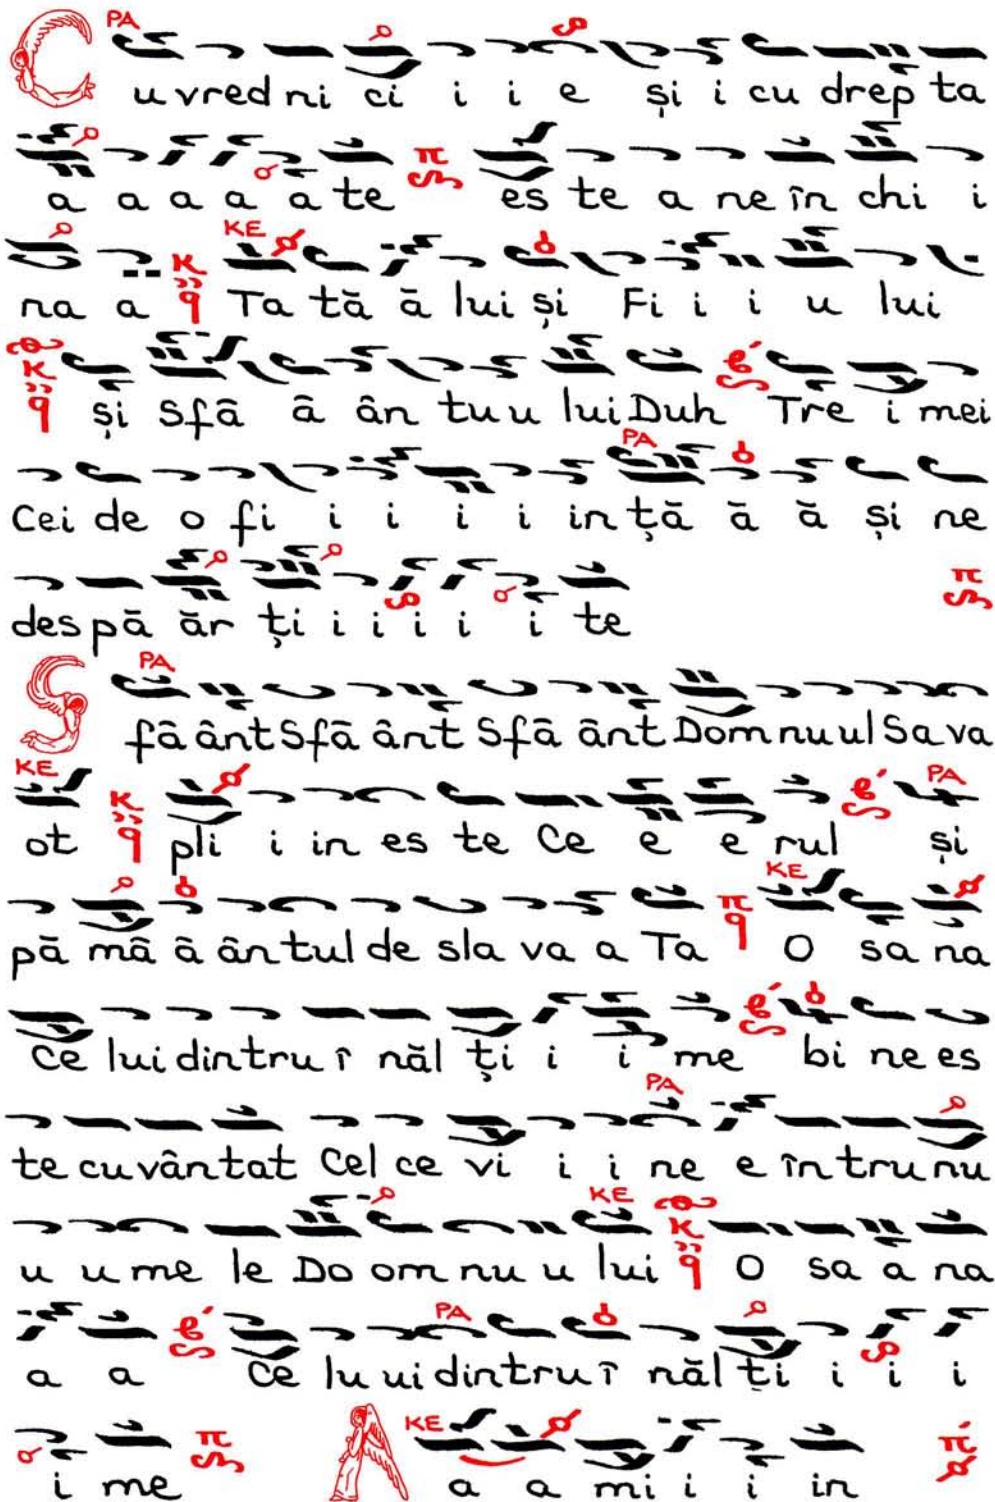 PA
C u vred ni ci i i e și i cu drep ta
a a a a a te π es te a ne în chi i
KE
na a κ q Ta tă ă lui și Fi i i u lui
κ q și Sfâ â ân tu u lui Duh Tre i mei
PA
Cei de o fi i i i i in ță ă ă și ne
des pă ăr ți i i i i i te π
PA
S fâ ânt Sfâ ânt Sfâ ânt Dom nu ul Sa va
KE PA
ot κ q pli i in es te Ce e e rul și
KE
pă mâ â ân tul de sla va a Ta π q O sa na
Ce lui din tru î năl ți i i me bi ne es
PA
te cu vân tat Cel ce vi i i ne e în tru nu
KE
u u me le Do om nu u lui κ q O sa a na
PA
a a Ce lu ui din tru î năl ți i i i
KE
i me π A a a mi i i in π